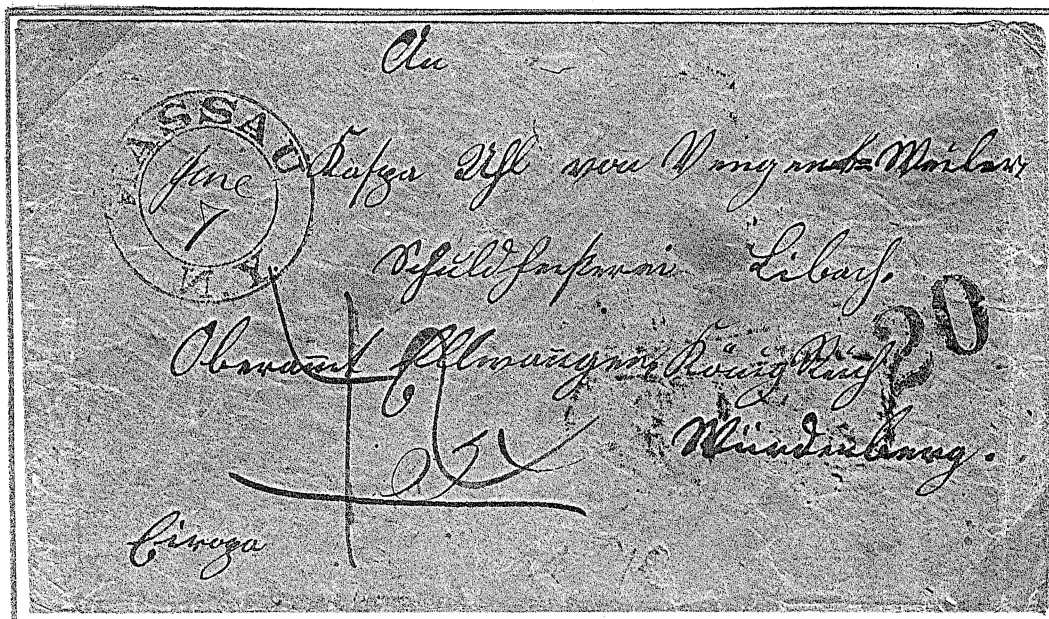 An
NASSAU
June
7
N.Y.
Kaspa Uhl von Weiler,
Schuldheiserei Libach.
20
Oberamt Ellwangen König Reich
Würdenberg.
Eiropa